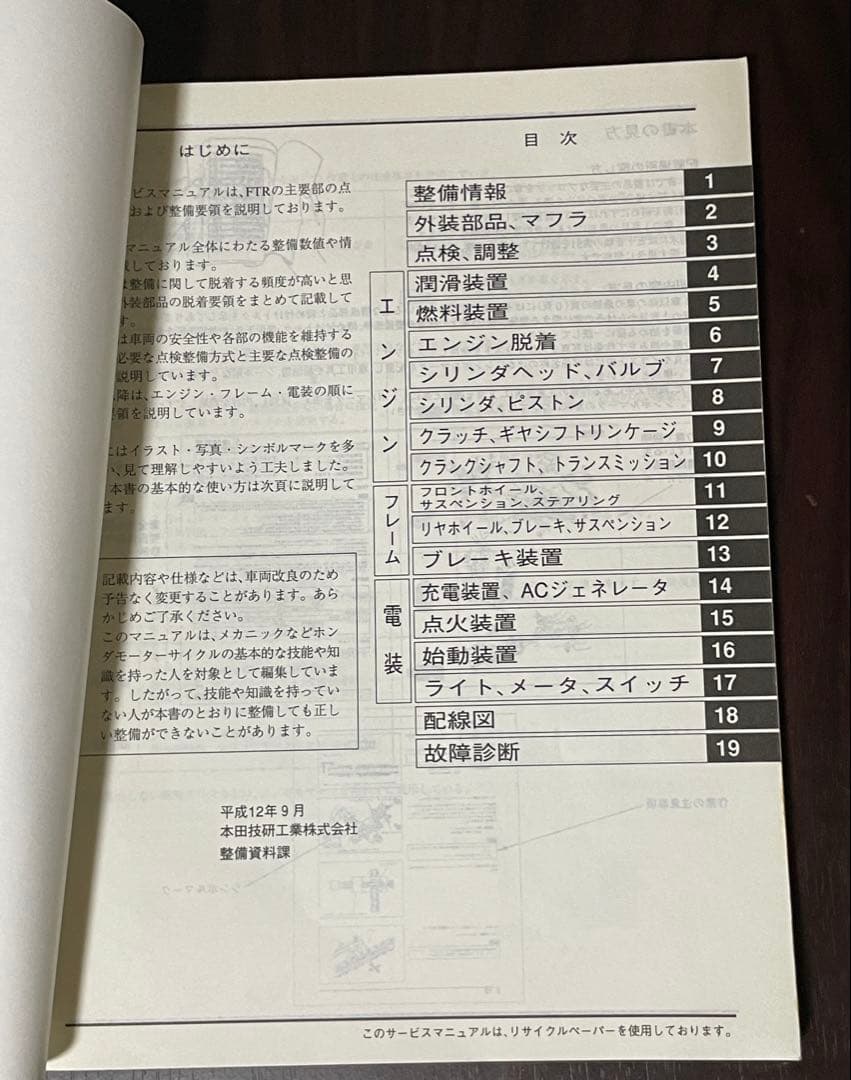 はじめに
ビスマニュアルは、FTRの主要部の点
および整備要領を説明しております。
マニュアル全体にわたる整備数値や情
載しております。
は整備に関して脱着する頻度が高いと思
外装部品の脱着要領をまとめて記載して
す。
は車両の安全性や各部の機能を維持する
必要な点検整備方式と主要な点検整備の
説明しています。
降は、エンジン・フレーム・電装の順に
領を説明しています。
にはイラスト・写真・シンボルマークを多
い、見て理解しやすいよう工夫しました。
本書の基本的な使い方は次頁に説明して
ます。
記載内容や仕様などは、車両改良のため
予告なく変更することがあります。あら
かじめご了承ください。
このマニュアルは、メカニックなどホン
ダモーターサイクルの基本的な技能や知
識を持った人を対象として編集していま
す。したがって、技能や知識を持ってい
ない人が本書のとおりに整備しても正し
い整備ができないことがあります。
平成12年9月
本田技研工業株式会社
整備資料課
目次
整備情報 1
外装部品、マフラ 2
点検、調整 3
エンジン
潤滑装置 4
燃料装置 5
エンジン脱着 6
シリンダヘッド、バルブ 7
シリンダ、ピストン 8
クラッチ、ギヤシフトリンケージ 9
クランクシャフト、トランスミッション 10
フレーム
フロントホイール、
サスペンション、ステアリング 11
リヤホイール、ブレーキ、サスペンション 12
ブレーキ装置 13
電装
充電装置、ACジェネレータ 14
点火装置 15
始動装置 16
ライト、メータ、スイッチ 17
配線図 18
故障診断 19
このサービスマニュアルは、リサイクルペーパーを使用しております。